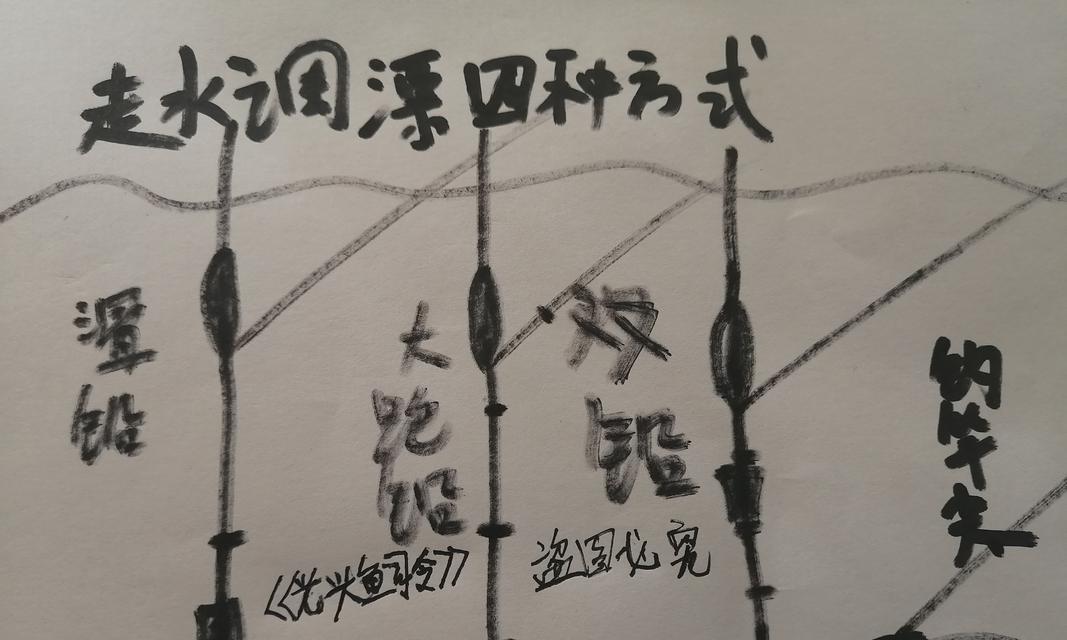 走水调漂四种方式
铅
大跑铅
双铅
钓竿尖
《兴鱼司令》
盗图必究